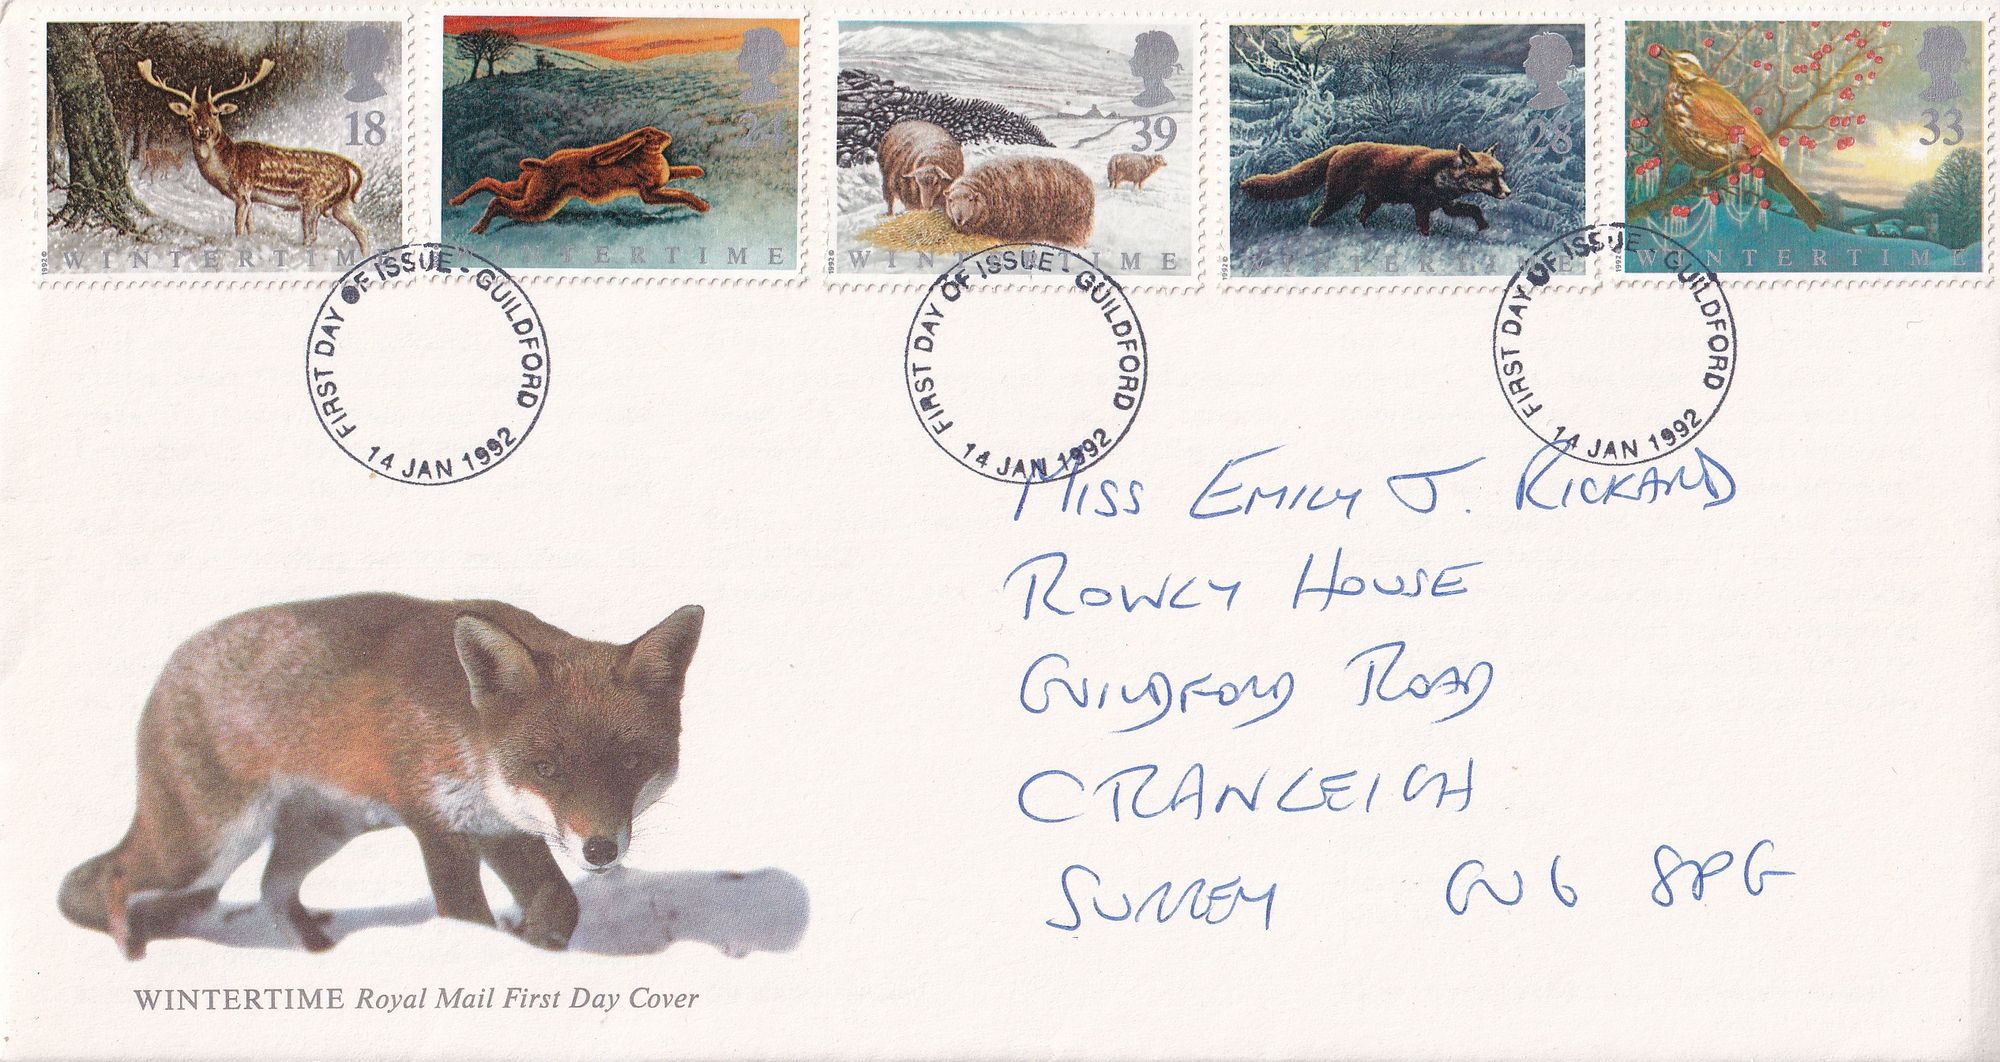 18
WINTERTIME
1992©
24
WINTERTIME
39
WINTERTIME
1992©
28
WINTERTIME
1992©
33
WINTERTIME
1992©
FIRST DAY OF ISSUE - GUILDFORD
14 JAN 1992
FIRST DAY OF ISSUE - GUILDFORD
14 JAN 1992
FIRST DAY OF ISSUE GUILDFORD
14 JAN 1992
MISS EMILY J. RICKARD
ROWLY HOUSE
GUILDFORD ROAD
CRANLEIGH
SURREY GU6 8PG
WINTERTIME Royal Mail First Day Cover